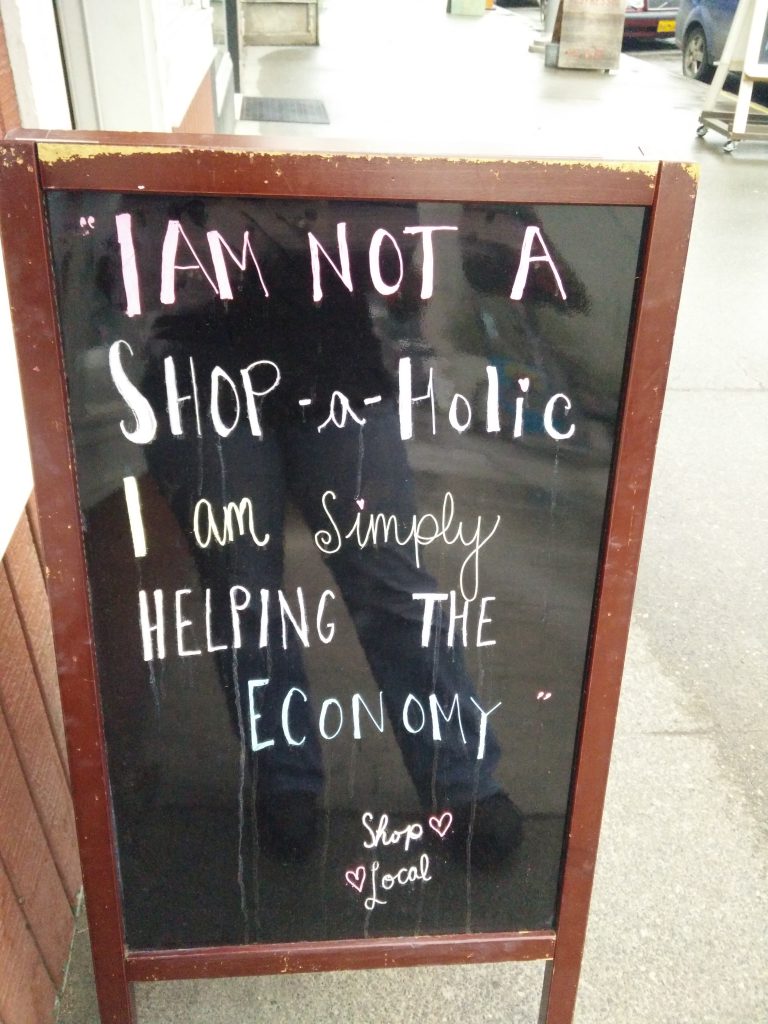 "I AM NOT A
SHOP-a-Holic
I am simply
HELPING THE
ECONOMY"
Shop
Local